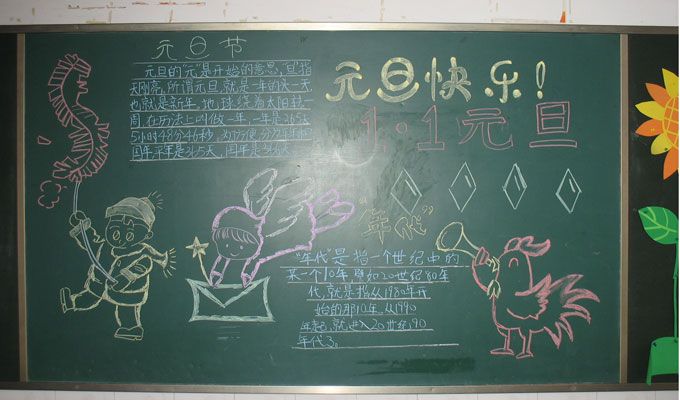 元旦节
元旦的"元"是开始的意思,"旦"指
天刚亮,所谓元旦,就是一年的头一天
也就是新年,地球绕着太阳转一
周,在历法上叫做一年,一年是365天
5小时48分46秒,为方便,分为平年和
闰年,平年是365天,闰年是366天
元旦快乐!
1·1元旦
"年代"
"年代"是指一个世纪中的
某一个10年,譬如20世纪80年
代,就是指从1980年开
始的那10年,从1990
年起,就进入20世纪90
年代了。